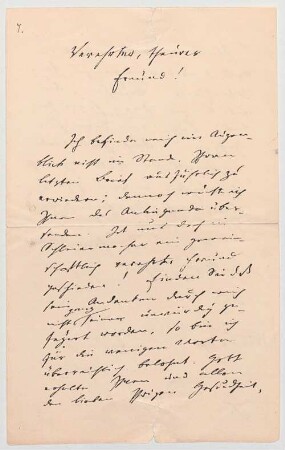 Verehrter, theurer
Freund!
Ich befinde mich im Augen-
blick nicht im Stand, Ihren
letzten Brief ausführlich zu
erwiedern; dennoch wollt ich
Ihnen das Anliegende über-
senden. Ist uns doch in
Schleiermacher ein gemein-
schaftlich verehrter Freund
geschieden! Finden Sie daß
sein Andenken durch mich
nicht seiner unwürdig ge-
feyert worden, so bin ich
für die wenigen Worte
überreichlich belohnt. Gott
erhalte Ihnen und allen
den lieben Ihrigen Gesundheit,